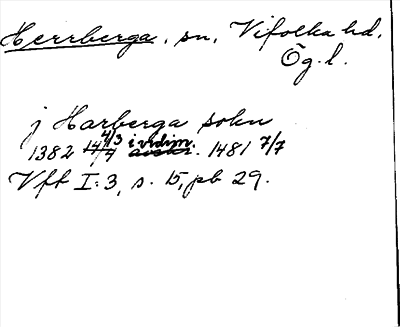 Herrberga, sn, Vifolka hd.
Ög. l.
j Harberga sokn
1382 4/3 i vidim. 1481 7/7
Vft I:3, s. 15, pb 29.